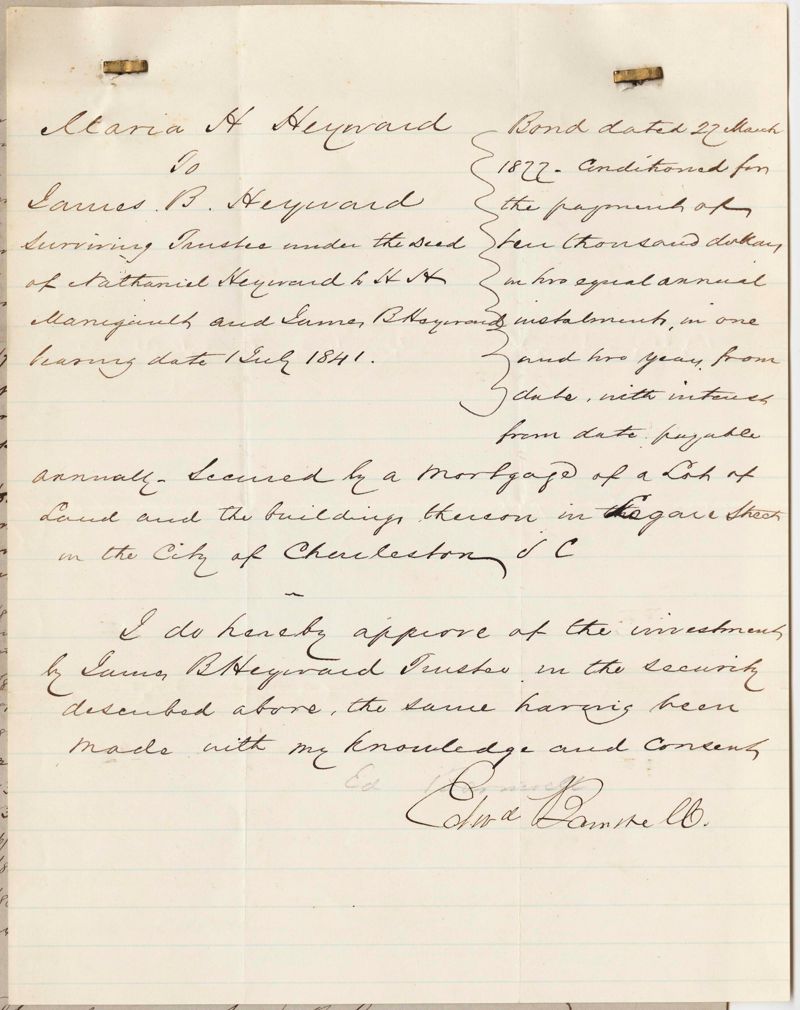 Maria H Heyward
To
James. B. Heyward
Surviving Trustee under the Deed
of Nathaniel Heyward to H H
Manigault and James B Heyward
bearing date 1 July 1841.
Bond dated 27 March
1877 - Conditioned for
the payment of
ten thousand dollars
in two equal annual
instalments, in one
and two years from
date, with interest
from date payable
annually - Secured by a Mortgage of a Lot of
Land and the buildings thereon in Legare Street
in the City of Charleston S C
I do hereby approve of the investment
by James B Heyward Trustee in the security
described above, the same having been
made with my knowledge and consent
Ed
Edwd Barnwell.